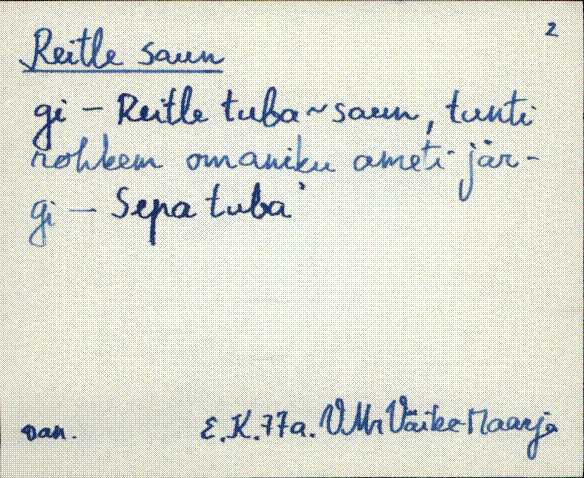 2
Reitle saun
gi – Reitle tuba ~ saun, tunti
rohkem omaniku ameti jär-
gi – Sepa tuba
van.
E.K.77a. VMr Väike-Maarja